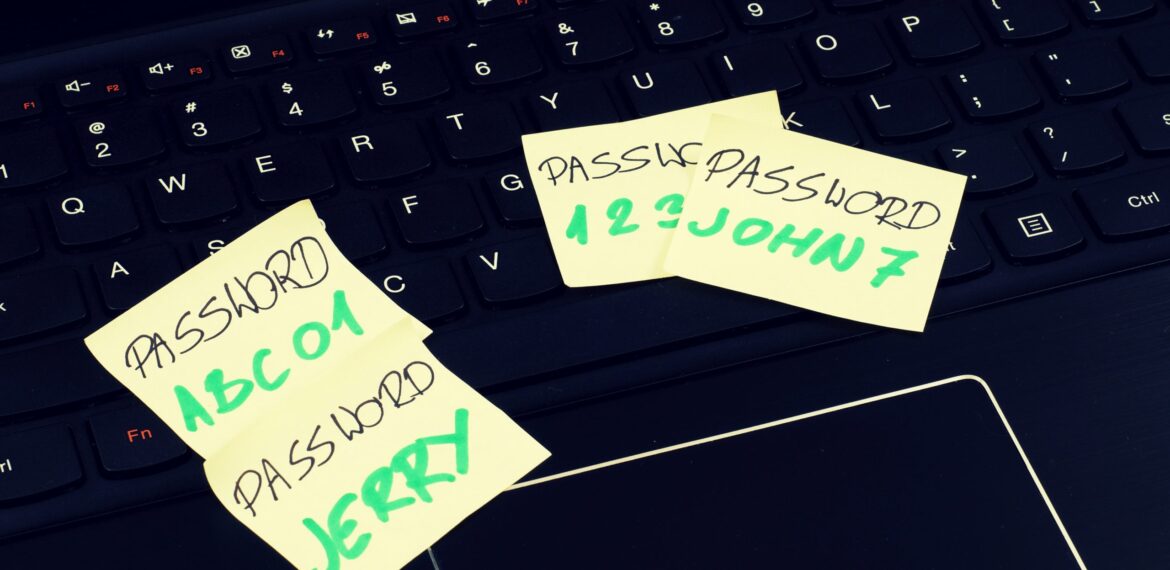 F1 F2 F3 F4 F5 F6 F7
@ # $ % ^ & *
2 3 4 5 6 7 8 9
Q W E R T Y U I O P [
A S F G K L : ; " '
C V > . ? /
Fn Ctrl
PASSWORD
ABC01
PASSWORD
JERRY
PASSW
123
PASSWORD
JOHN7